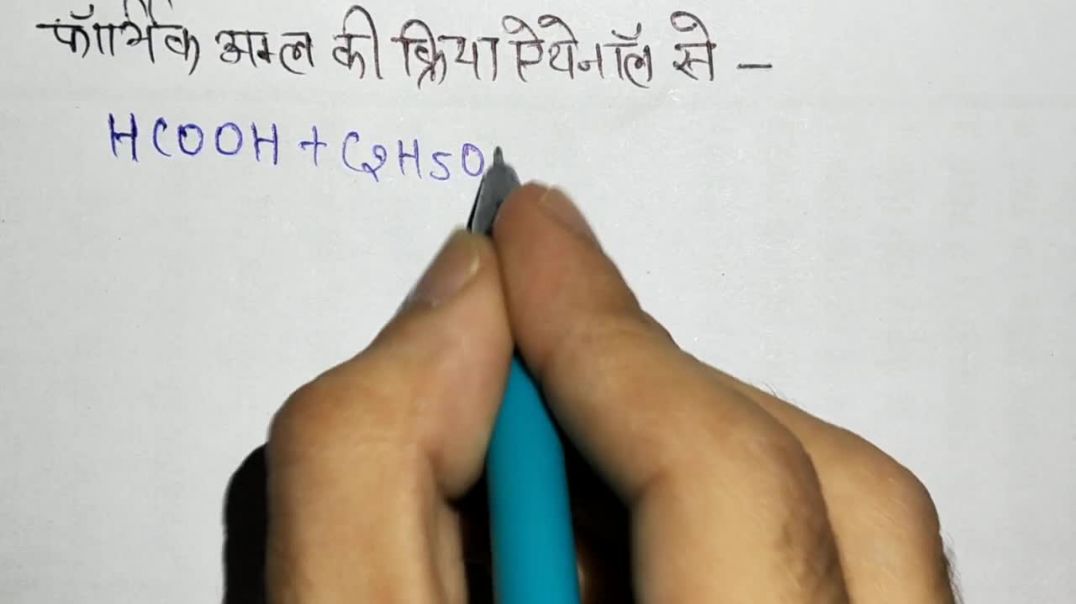 फॉर्मिक अम्ल की क्रिया ऐथेनॉल से –
HCOOH + C2H5O